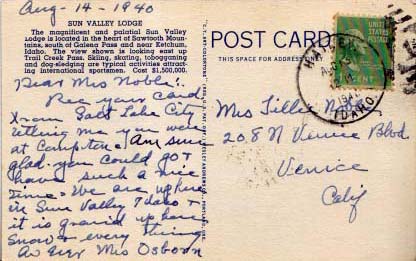 Aug - 14 - 1940
SUN VALLEY LODGE
The magnificent and palatial Sun Valley
Lodge is located in the heart of Sawtooth Mountains,
south of Galena Pass and near Ketchum,
Idaho. The view shown is looking east up
Trail Creek Pass. Skiing, skating, tobogganing
and dog-sledding are typical activities attract-
ing international sportsmen. Cost $1,500,000.
Dear Mrs Noble:.
Rec your Card
from Salt Lake City
telling me you were
at Compton. Am sure
glad you could got
have such a nice
time. We are up here
in Sun Valley Idaho &
it is grand up here
Snow & every thing
As Ever Mrs Osborn
POST CARD
THIS SPACE FOR ADDRESS ONLY
IDAHO
CENT
Mrs Tillie
208 N Venice Blvd
Venice
Calif